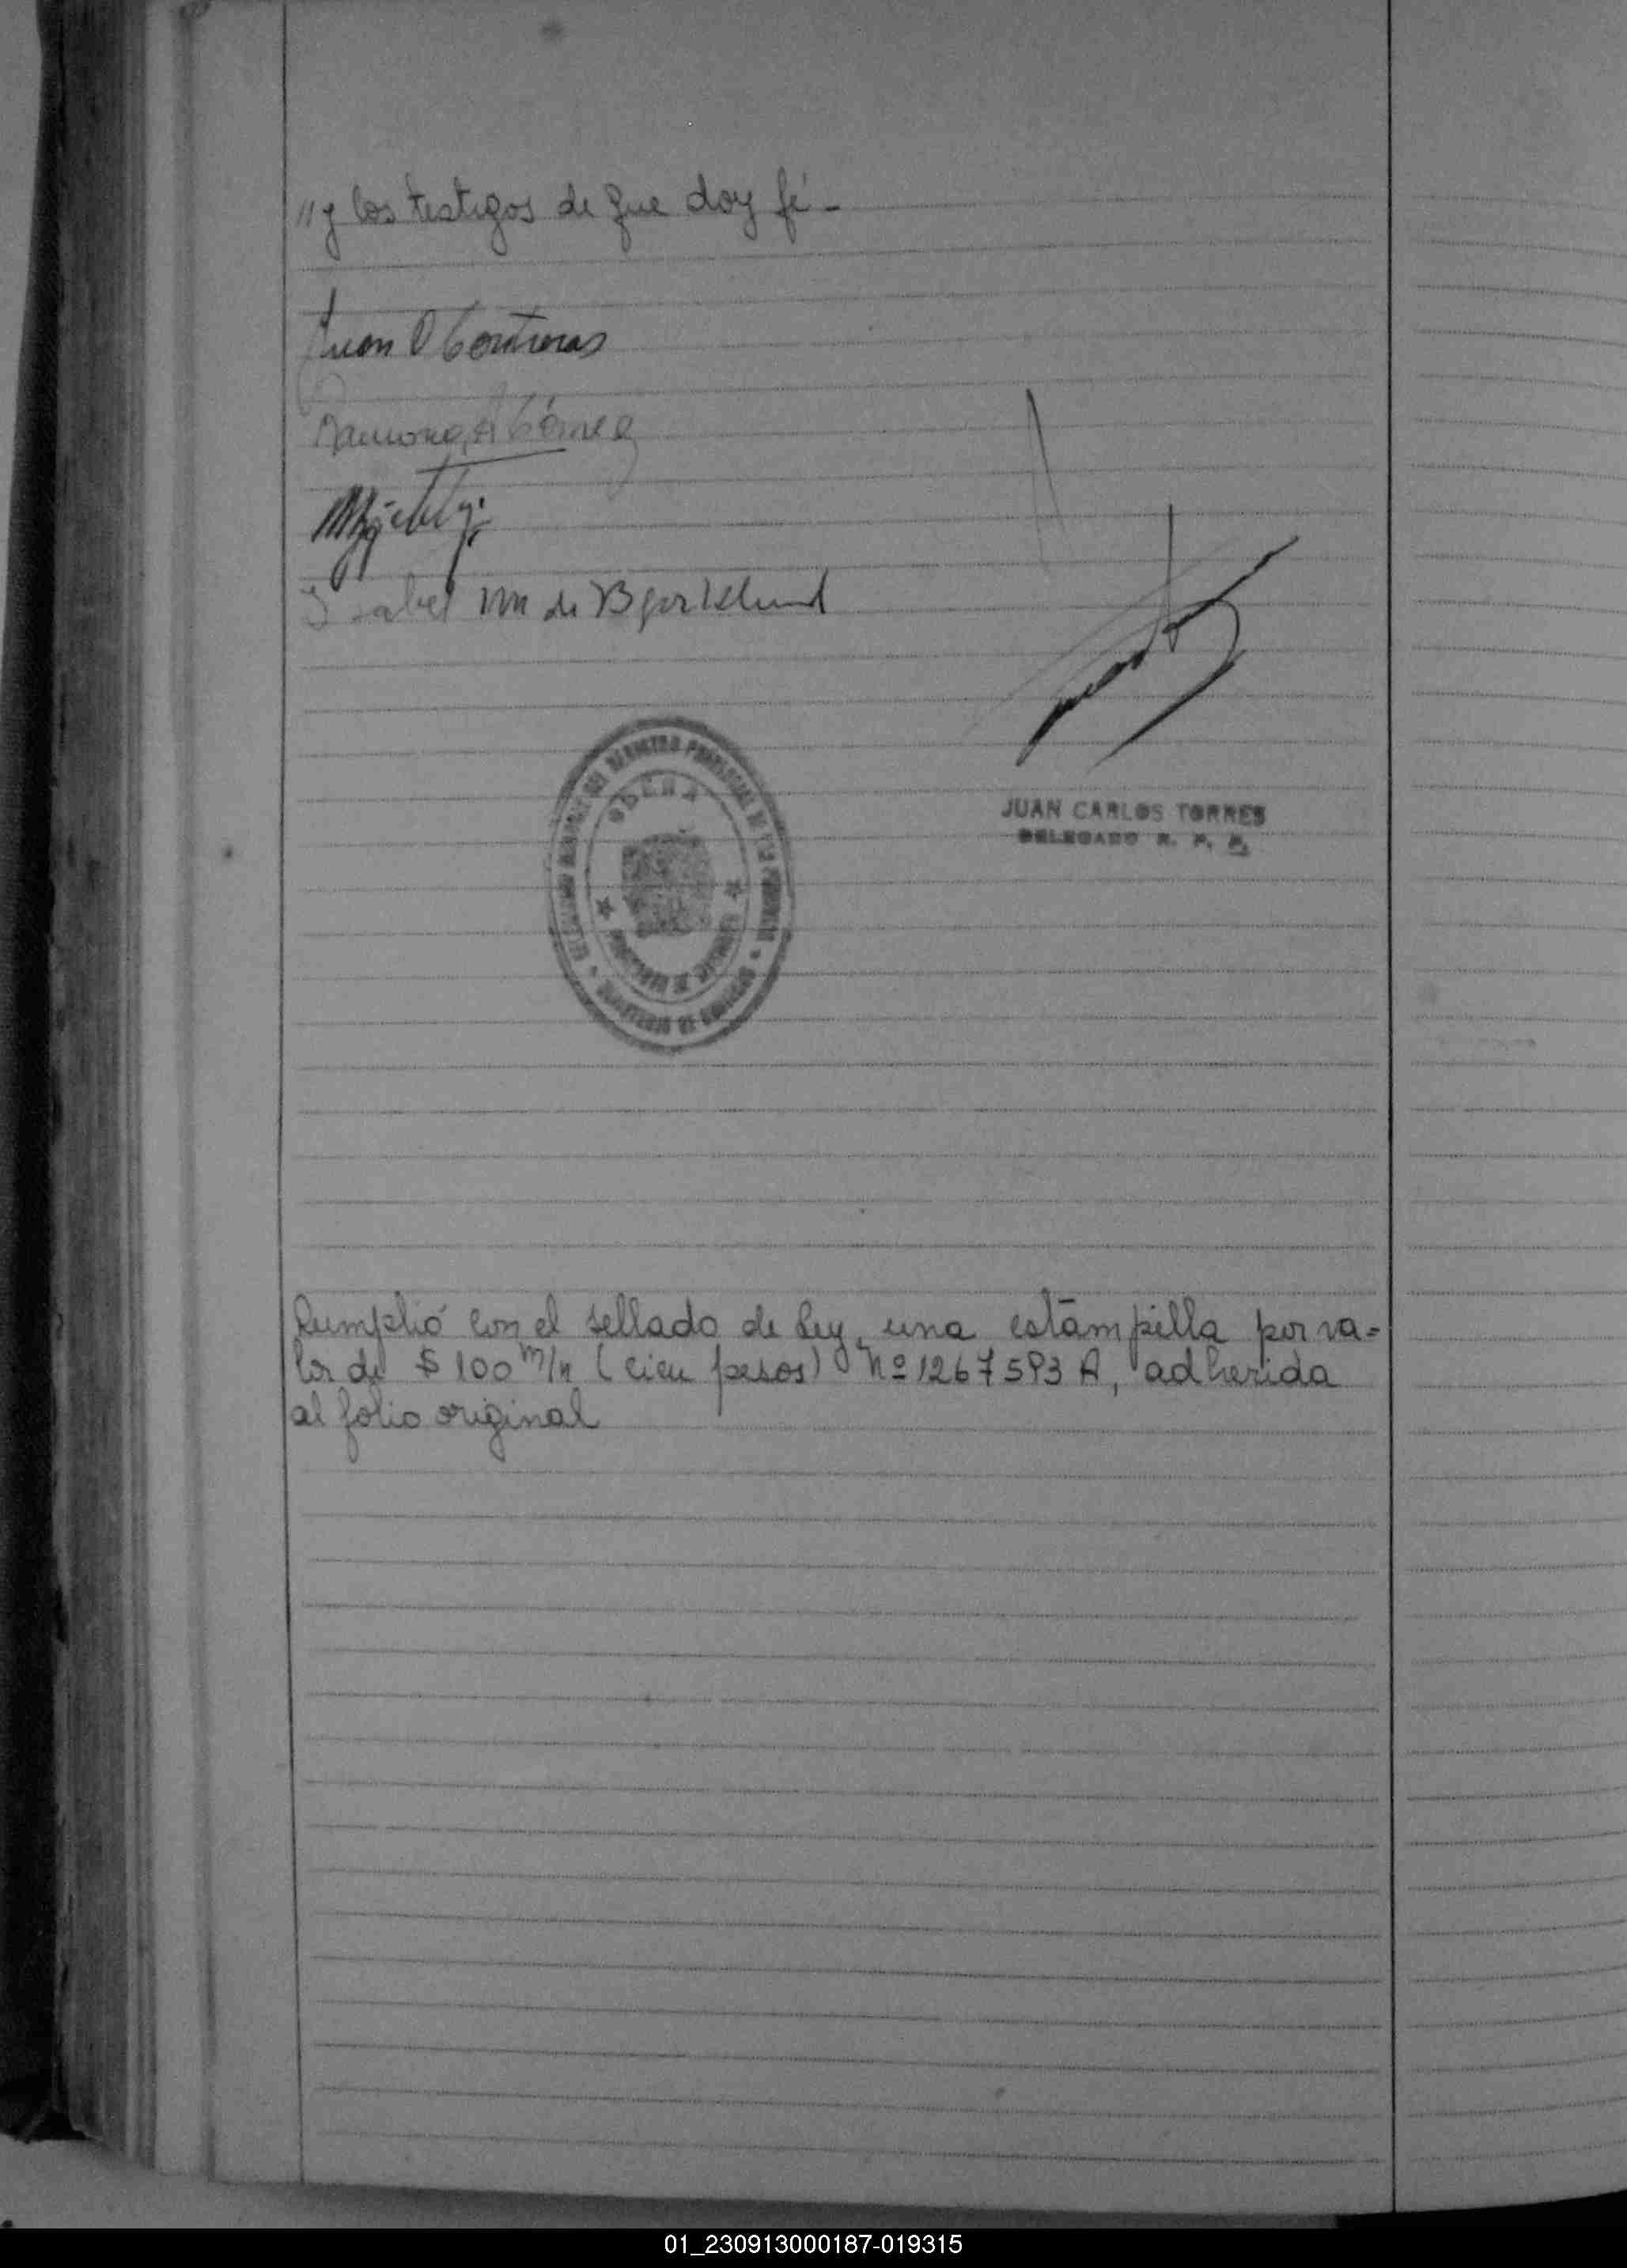 " y los testigos de que doy fé -
Juan O Contreras
Ramona A Gómez
Isabel M de Bjorklund
OBERA
JUAN CARLOS TORRES
DELEGADO R. P. P.
Cumplió con el sellado de Ley, una estampilla por va=
lor de $ 100 m/n (cien pesos) Nº 1267593 A, adherida
al folio original
01_230913000187-019315